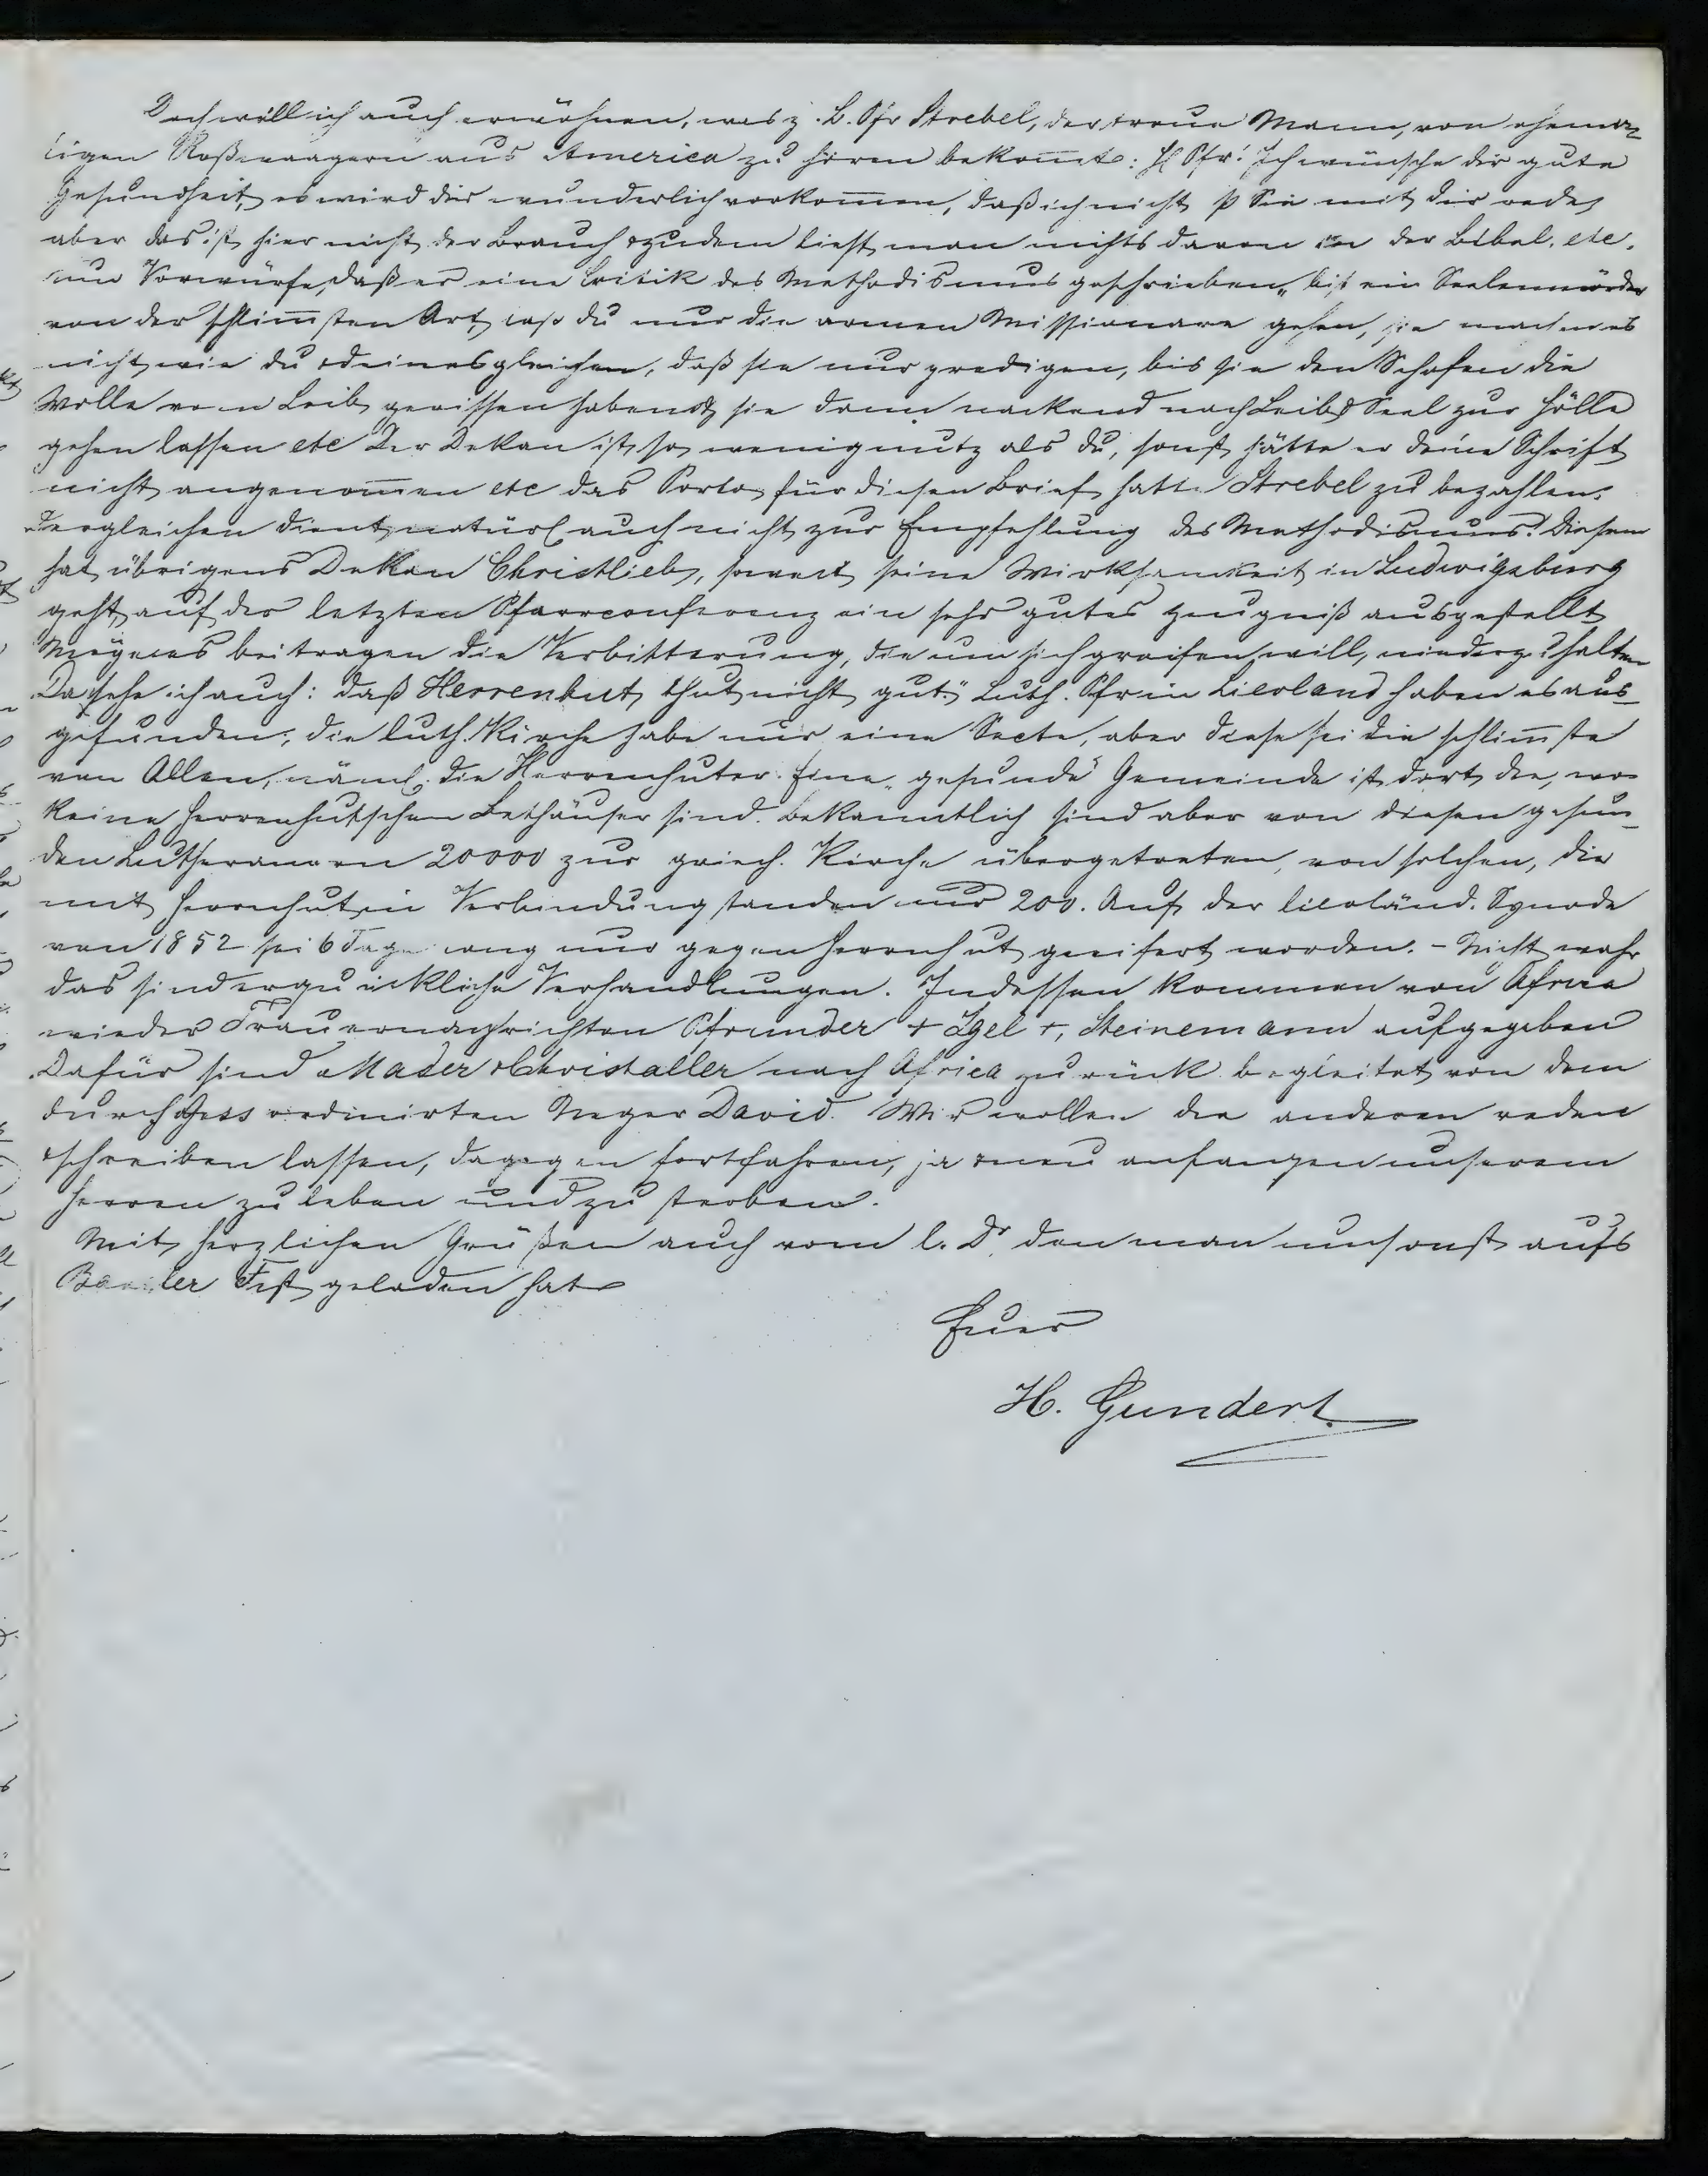 Doch will ich auch erwähnen, was z. B. Pfr Strebel, der treue Mann, von ehema-
ligen Roßwaagern aus America zu hören bekom̅t: H Pfr! Ich wünsche dir gute
Gesundheit, es wird dir wunderlich vorkom̅en, daß ich nicht p Sie mit dir rede,
aber das ist hier nicht der Brauch & zudem liest man nichts davon in der Bibel. etc.
nun Vorwürfe, daß er eine Critik des Methodismus geschrieben „bist ein Seelenmörder
von der schlim̅sten Art, laß du nur die armen Missionare gehen, sie machen es
nicht wie du & deinesgleichen, daß sie nur predigen, bis sie den Schafen die
Wolle vom Leib gerissen haben & sie dann nackend nach Leib & Seel zur Hölle
gehen lassen etc Der Dekan ist so wenig nutz als du, sonst hätte er deine Schrift
nicht angenom̅en etc das Porto für diesen Brief hatte Strebel zu bezahlen.
Dergleichen dient natürl auch nicht zur Empfehlung des Methodismus! Diesem
hat übrigens Dekan Christlieb, soweit seine Wirksamkeit in Ludwigsburg
geht, auf der letzten Pfarrconferenz ein sehr gutes Zeugniß ausgestellt
Möge es beitragen die Verbitterung, die um sich greifen will, niederzuhalten
Da sehe ich auch: daß Herrenhut thut nicht gut." Luth. Pfr in Livland haben es aus-
gefunden, die luth. Kirche habe nur eine Secte, aber diese sei die schlim̅ste
von Allen, näml. die Herrenhuter. Eine „gesunde" Gemeinde ist dort die, wo
keine herrenhutschen Bethäuser sind. Bekanntlich sind aber von diesen gesun-
den Lutheranern 20000 zur griech. Kirche übergetreten, von solchen, die
mit Herrnhut in Verbindung standen nur 200. Auf der livländ. Synode
von 1852 sei 6 Tage lang nur gegen Herrnhut geeifert worden. - Nicht wahr
das sind erquickliche Verhandlungen. Indessen kommen von Africa
wieder Trauernachrichten Pfrunder + Igel +, Steinemann aufgegeben
Dafür sind Mader & Christaller nach Africa zurück begleitet von dem
durch Hess ordinirten Neger David. Wir wollen die anderen reden
& schreiben lassen, dagegen fortfahren, ja neu anfangen unserem
Herren zu leben und zu sterben.
Mit herzlichen Grüßen auch vom l. Dr. den man umsonst aufs
Basler Fest geladen hat
Euer
H. Gundert